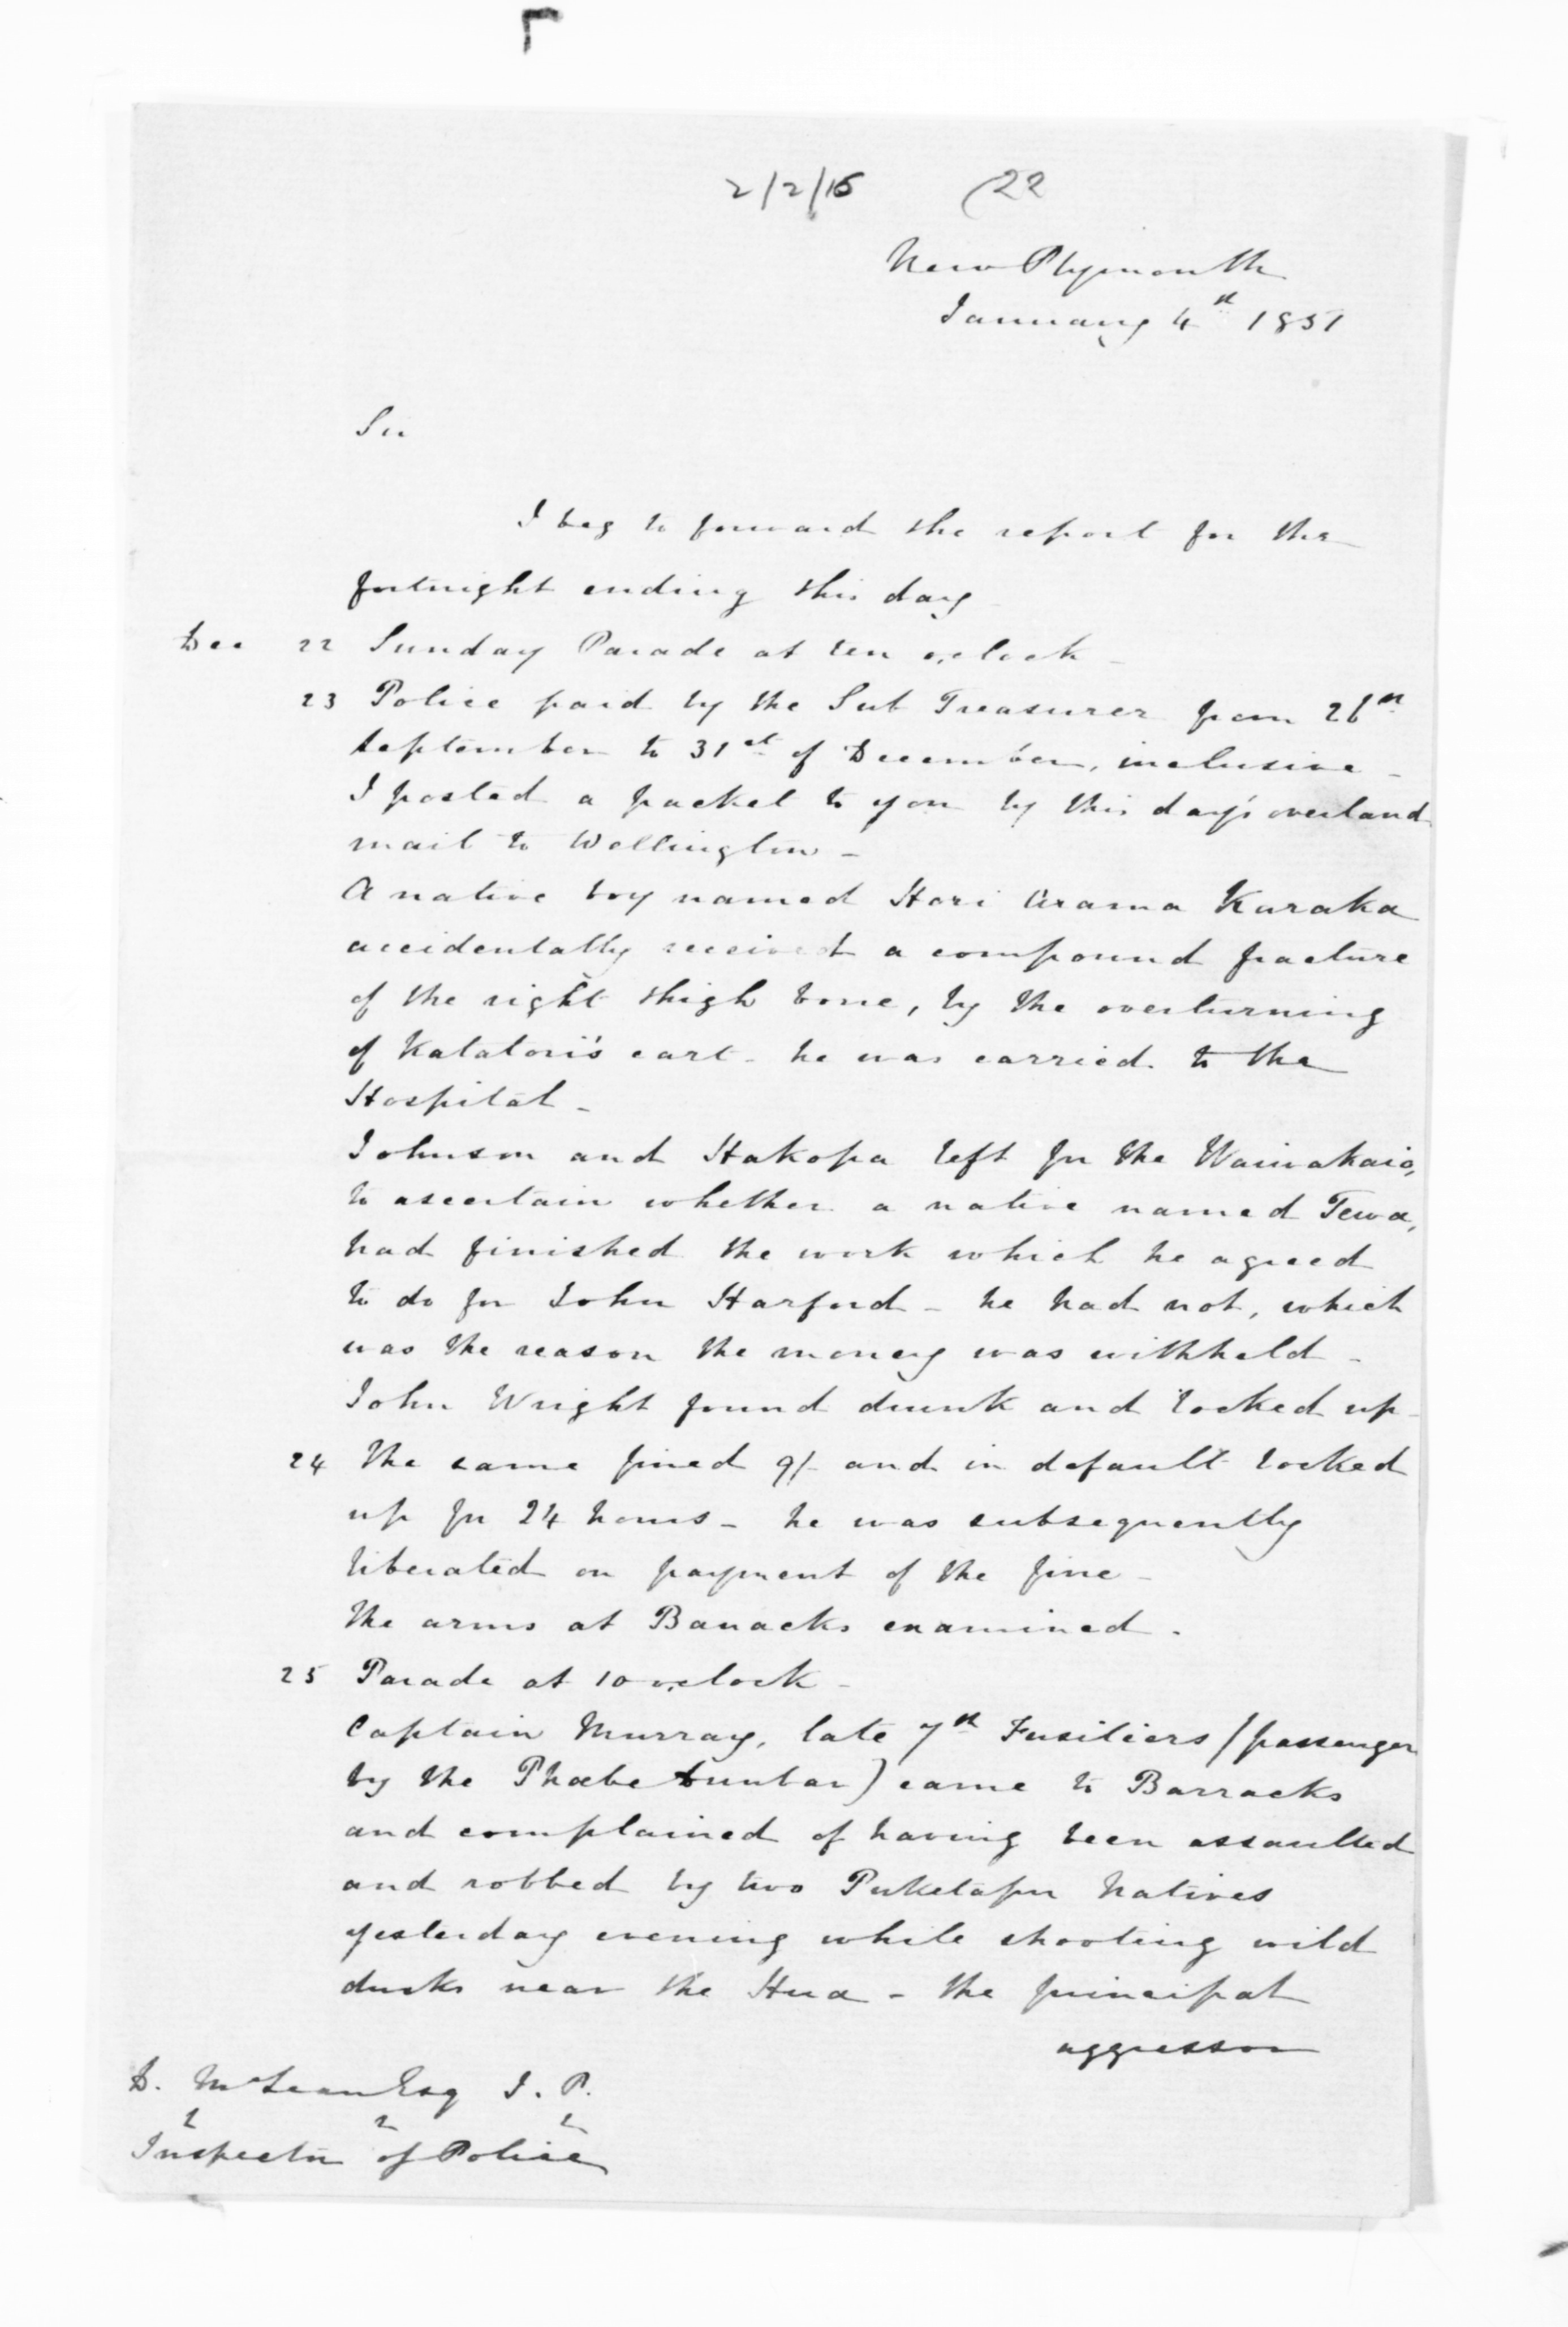 2/2/15 (22
New Plymouth
January 4th 1851
Sir
I beg to forward the report for the
fortnight ending this day
Dec 22 Sunday Parade at ten o,clock -
23 Police paid by the Sub Treasurer from 26th
September to 31st of December, inclusive -
I posted a packet to you by this day's overland
mail to Wellington -
A native boy named Hori Arama Karaka
accidentally received a compound fracture
of the right thigh bone, by the overturning
of Katatori's cart - he was carried to the
Hospital -
Johnson and Hakopa left for the Waiwakaio,
to ascertain whether a native named Tewa,
had finished the work which he agreed
to do for John Harford - he had not, which
was the reason the money was withheld -
John Wright found drunk and locked up -
24 The same fined 9/- and in default locked
up for 24 hours - he was subsequently
liberated on payment of the fine -
The arms at Barracks examined.
25 Parade at 10 o,clock -
Captain Murray, late 7th Fusiliers (passenger
by the Phoebe Dunbar) came to Barracks
and complained of having been assaulted
and robbed by two Puketapu Natives
yesterday evening while shooting wild
ducks near the Hua - the principal
aggressor
D. McLean Esq J. P.
Inspector of Police